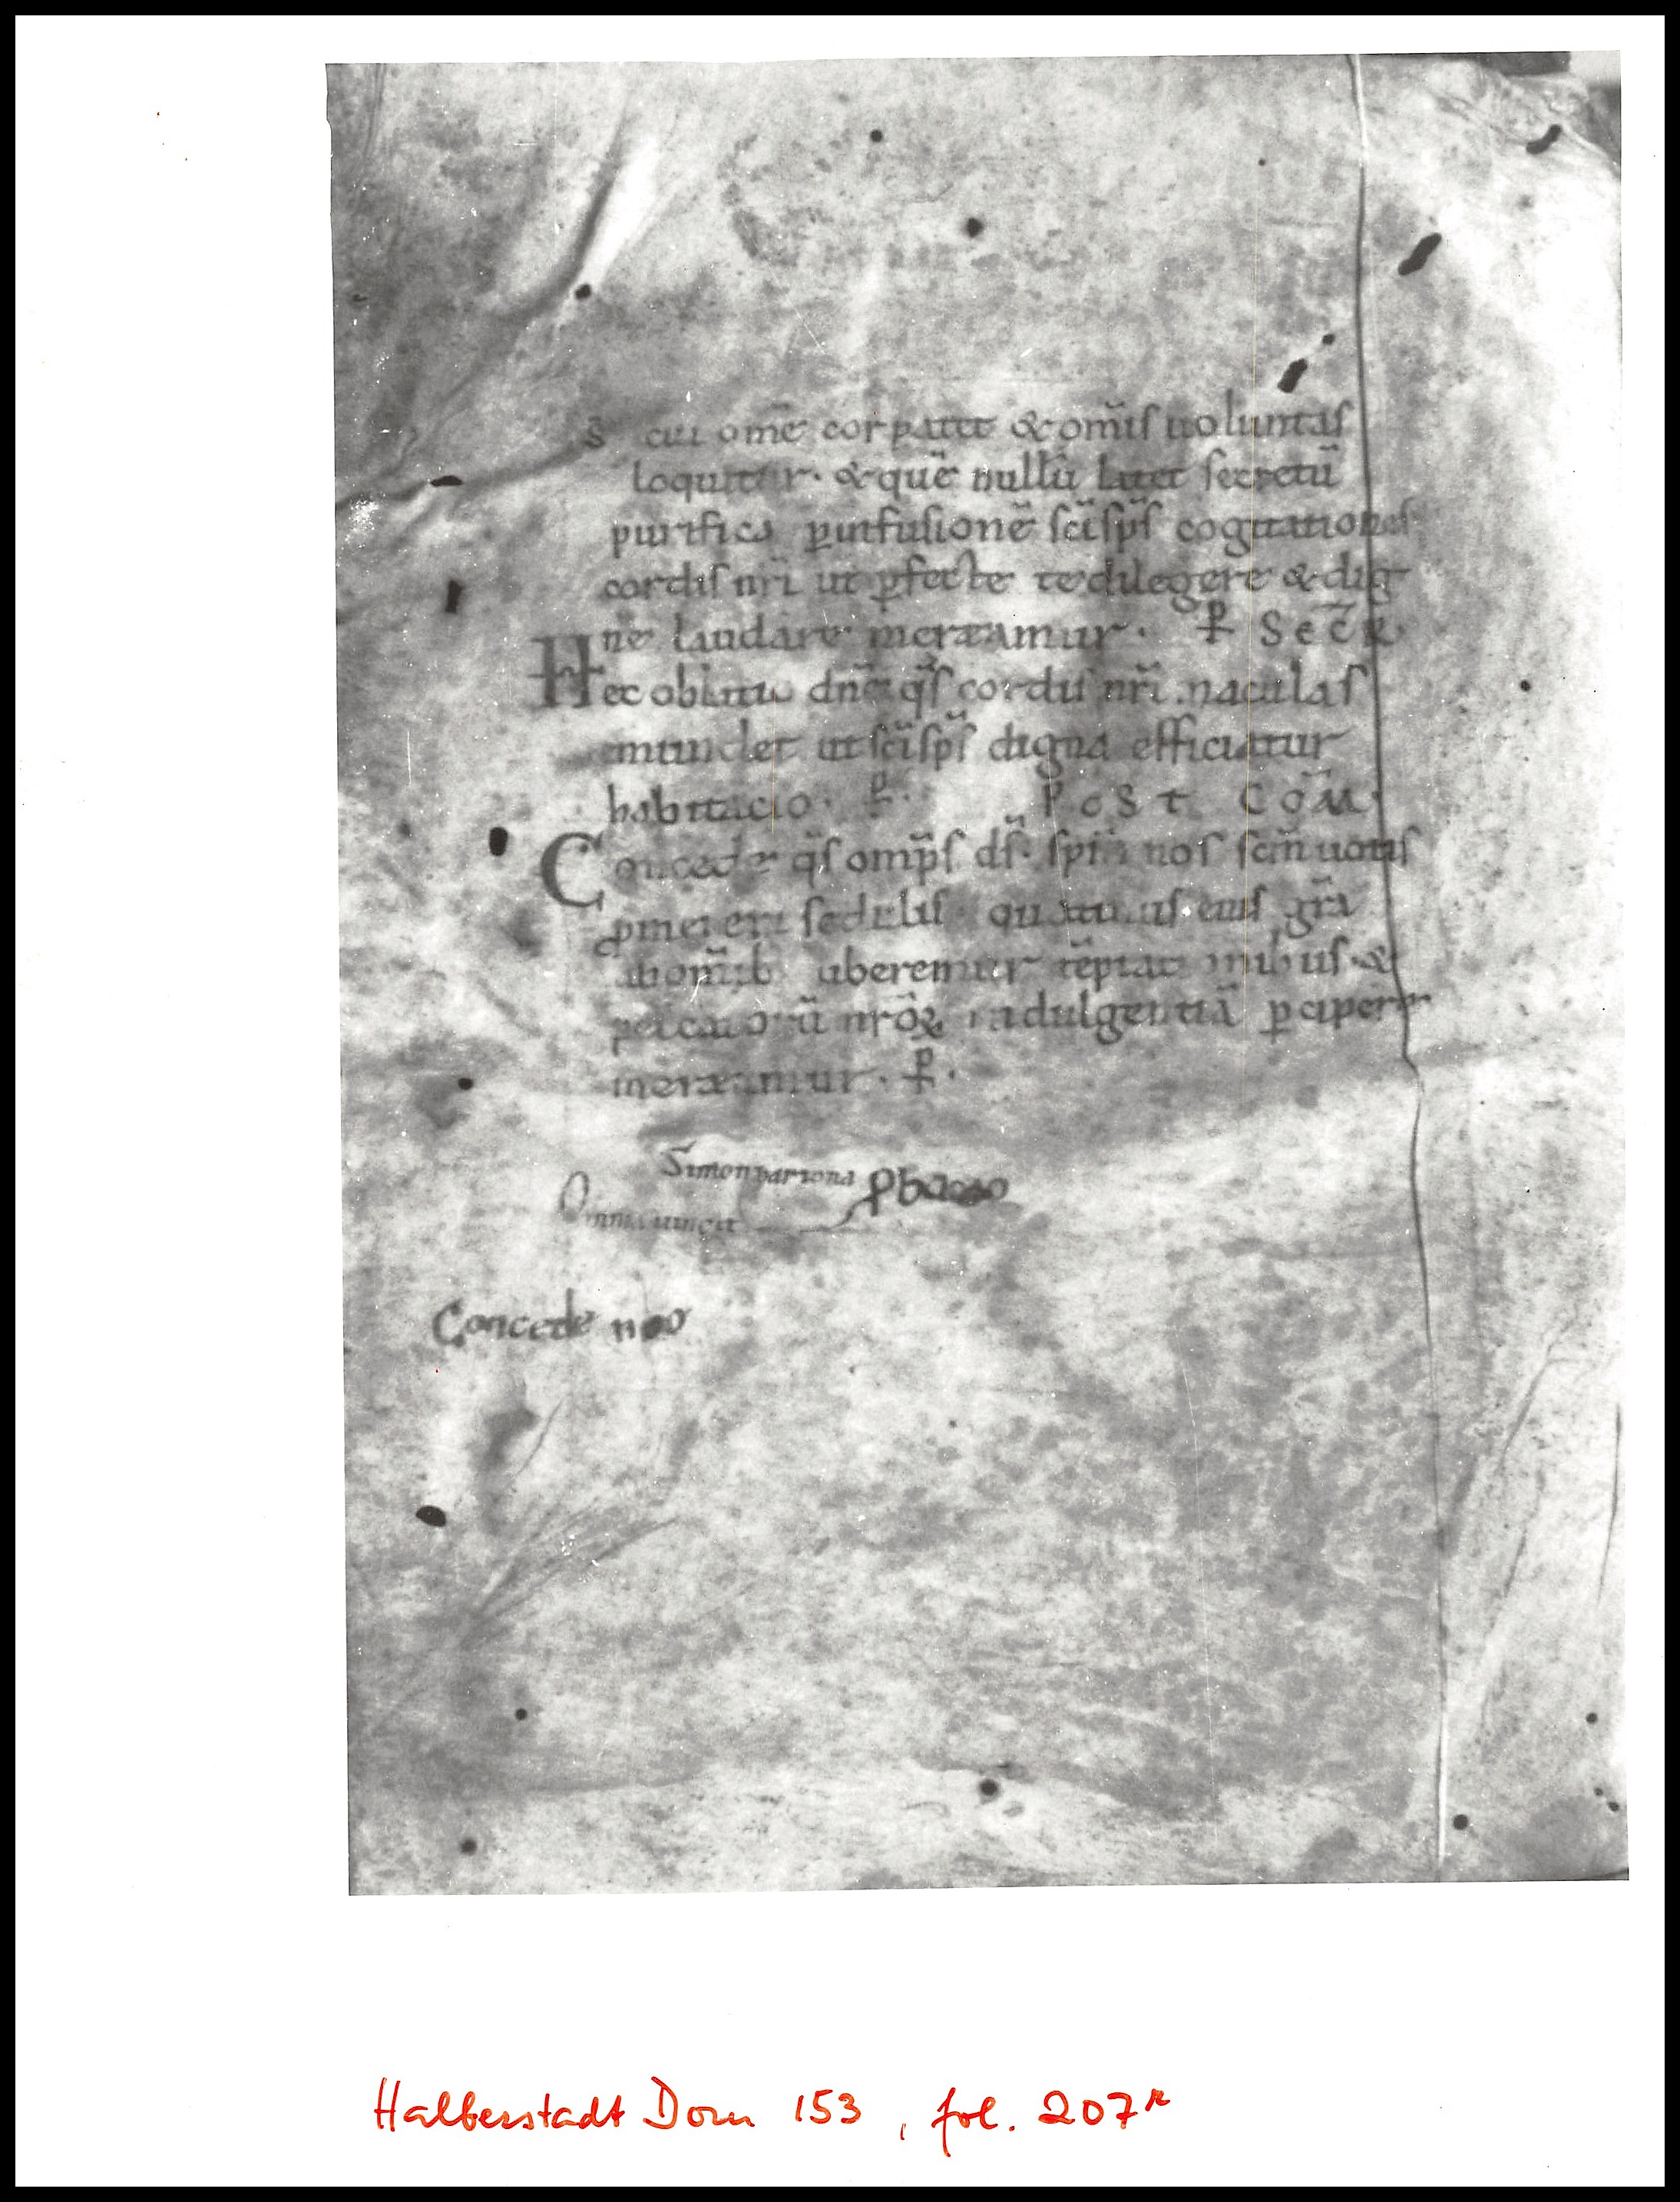 s̄ cui om̄e cor patet & om̄is uoluntas
loquitur · & quē nullū latet secretū
purifica ꝑ infusionē sc̄i sp̄s cogitationes
cordis nr̄i ut ꝑfecte te dilegere & dig
ne laudare meræamur · P̄ SECR̄
Hec oblatio dn̄e qs̄ cordis nr̄i maculas
mundet ut sc̄i sp̄s digna efficiatur
habitacio · P̄ · POST COM̄ ·
Concede qs̄ omp̄s ds̄ · sp̄m nos sc̄m uotis
ꝓmereri sedulis quatinus eius gr̄a
ab om̄ib liberemur tēptationibus · &
peccatorū nr̄oꝝ indulgentiā ꝑcipere
meræamur · P̄ ·
Simon bariona
Omnia uincit
Concede nos
Halberstadt Dom 153, fol. 207r